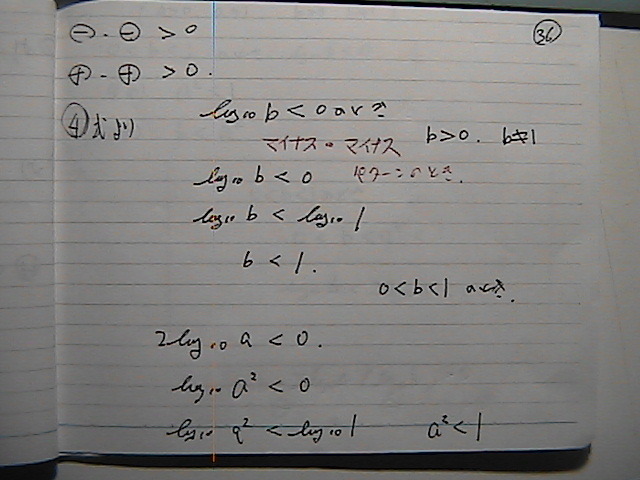 ㊱
⊖・⊖ > 0
⊕・⊕ > 0.
④式より log₁₀ b < 0 のとき
マイナス・マイナス b>0. b≠1
log₁₀ b < 0 パターンのとき.
log₁₀ b < log₁₀ 1
b < 1.
0<b<1 のとき.
2log₁₀ a < 0.
log₁₀ a² < 0
log₁₀ a² < log₁₀ 1 a²<1